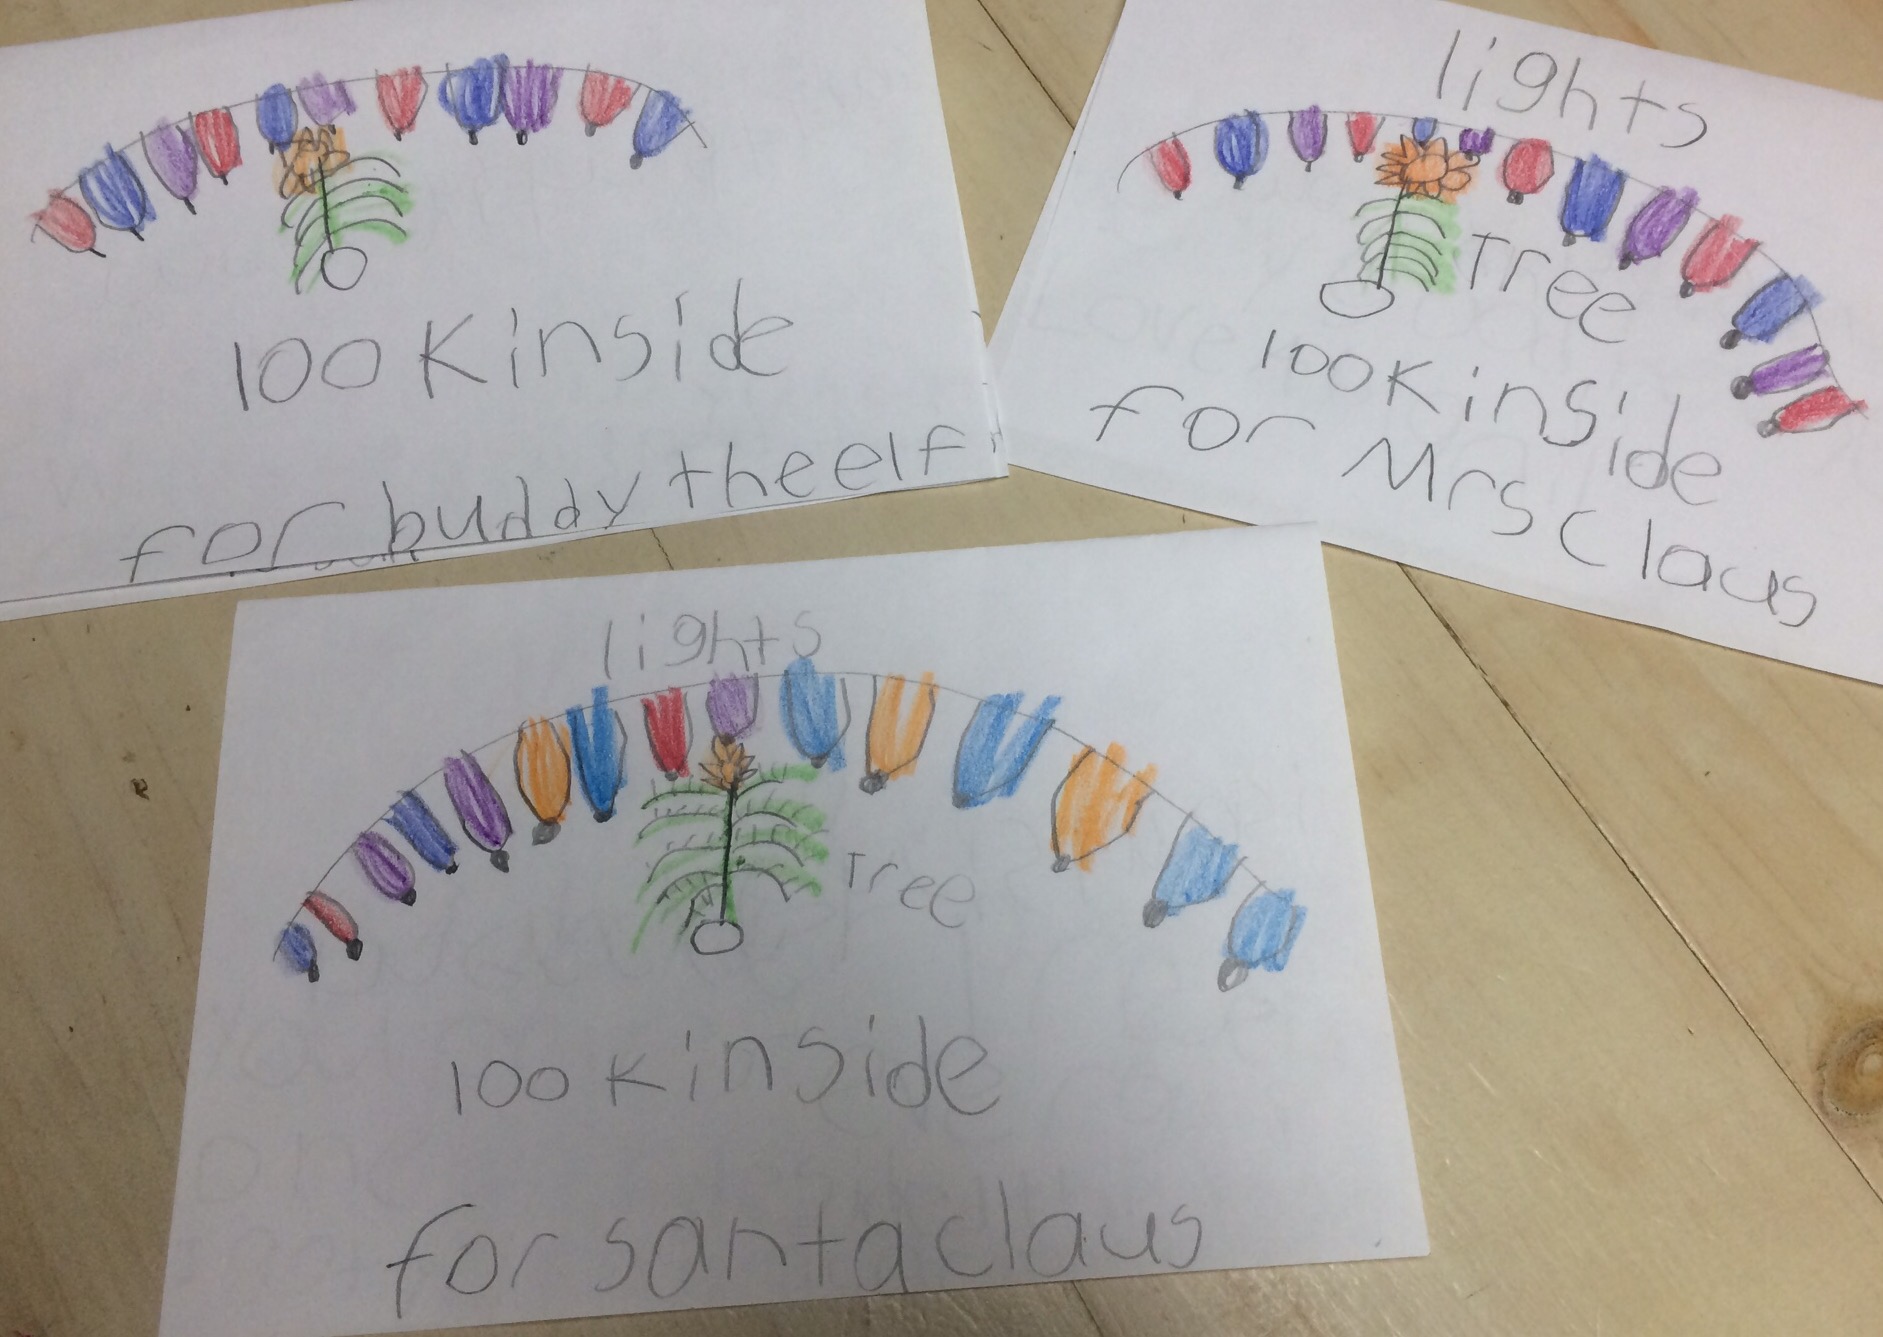 100K inside
for buddy the elf
lights
Tree
100K inside
for Mrs Claus
lights
Tree
100K inside
for santa claus